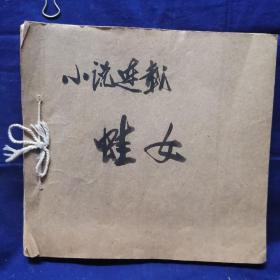 小说连载
蛙女